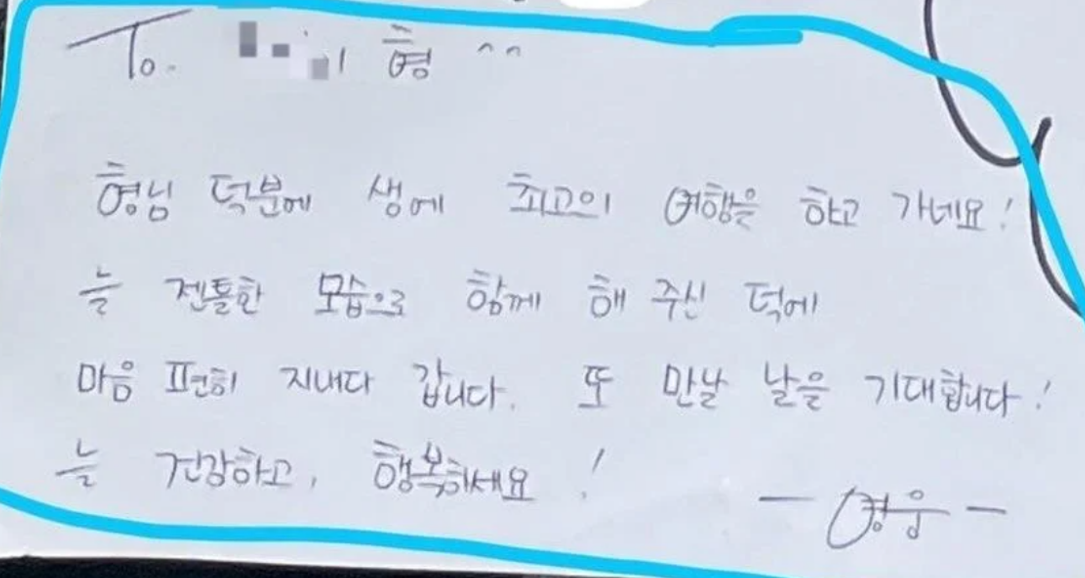 To. 이 형 ^^
형님 덕분에 생에 최고의 여행을 하고 가네요!
늘 젠틀한 모습으로 함께 해 주신 덕에
마음 편히 지내다 갑니다. 또 만날 날을 기대합니다!
늘 건강하고, 행복하세요!
- 영웅 -